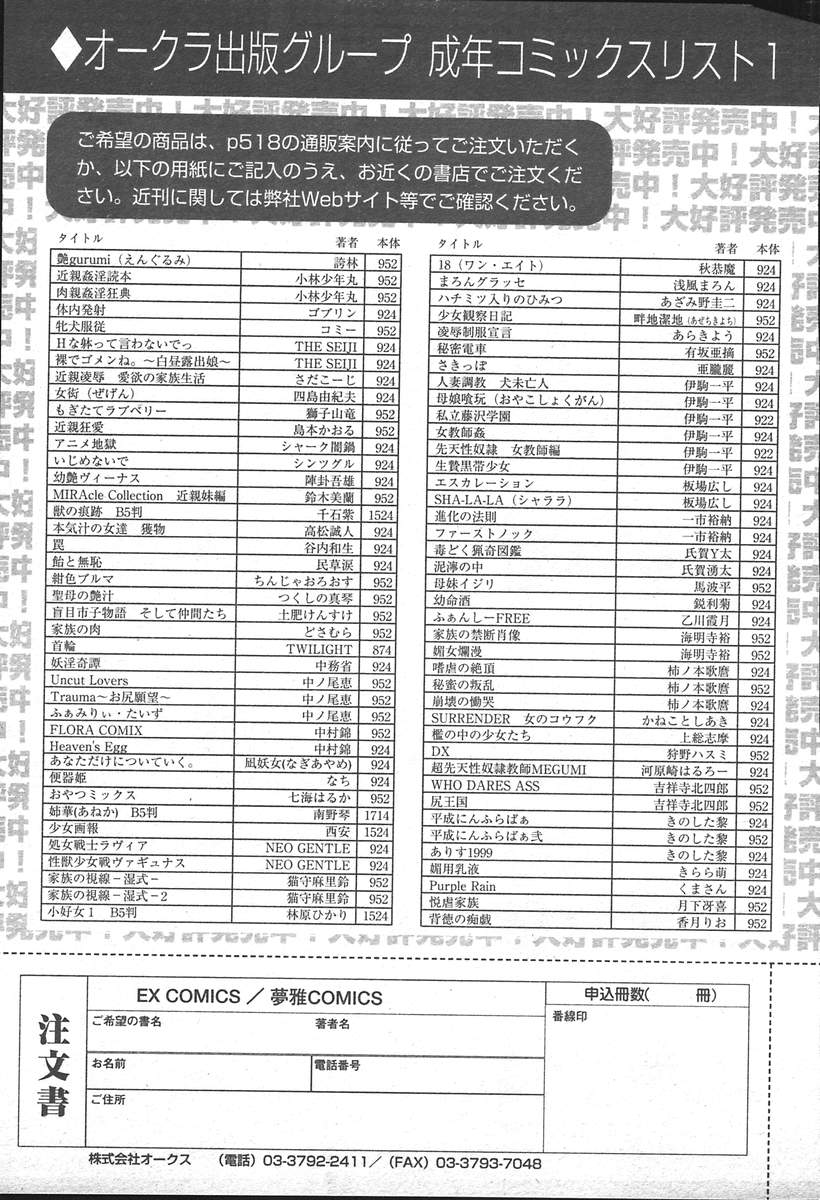 ◆オークラ出版グループ 成年コミックスリスト1
ご希望の商品は、p518の通販案内に従ってご注文いただく
か、以下の用紙にご記入のうえ、お近くの書店でご注文くだ
さい。近刊に関しては弊社Webサイト等でご確認ください。
タイトル 著者 本体
艶gurumi（えんぐるみ） 誇林 952
近親姦淫読本 小林少年丸 952
肉親姦淫狂典 小林少年丸 952
体内発射 ゴブリン 924
牝犬服従 コミー 952
Hな躾って言わないでっ THE SEIJI 924
裸でゴメンね。～白昼露出娘～ THE SEIJI 924
近親凌辱 愛欲の家族生活 さだこーじ 924
女術（ぜげん） 四島由紀夫 924
もぎたてラブベリー 獅子山竜 952
近親狂愛 島本かおる 952
アニメ地獄 シャーク闇鍋 924
いじめないで シンツグル 924
幼艶ヴィーナス 陣卦吾雄 924
MIRAcle Collection 近親妹編 鈴木美蘭 952
獣の痕跡 B5判 千石紫 1524
本気汁の女達 獲物 高松誠人 924
罠 谷内和生 924
飴と無恥 民草涙 924
紺色ブルマ ちんじゃおろおす 952
聖母の艶汁 つくしの真琴 952
盲目市子物語 そして仲間たち 土肥けんすけ 952
家族の肉 どざむら 952
首輪 TWILIGHT 874
妖淫奇譚 中務省 924
Uncut Lovers 中ノ尾恵 952
Trauma～お尻願望～ 中ノ尾恵 952
ふぁみりぃ・たいず 中ノ尾恵 952
FLORA COMIX 中村錦 952
Heaven's Egg 中村錦 924
あなただけについていく。 凪妖女(なぎあやめ) 924
便器姫 なち 924
おやつミックス 七海はるか 952
姉華(あねか) B5判 南野琴 1714
少女画報 西安 1524
処女戦士ラヴィア NEO GENTLE 924
性獣少女戦ヴァギュナス NEO GENTLE 924
家族の視線－湿式－ 猫守麻里鈴 952
家族の視線－湿式－2 猫守麻里鈴 952
小好女1 B5判 林原ひかり 1524
タイトル 著者 本体
18（ワン・エイト） 秋恭魔 924
まろんグラッセ 浅風まろん 924
ハチミツ入りのひみつ あざみ野圭二 924
少女観察日記 畔地潔地(あぜちきよち) 952
凌辱制服宣言 あらきよう 924
秘密電車 有坂亜摘 952
さきっぽ 亜朧麗 924
人妻調教 犬未亡人 伊駒一平 924
母娘喰玩（おやこしょくがん） 伊駒一平 924
私立藤沢学園 伊駒一平 922
女教師姦 伊駒一平 924
先天性奴隷 女教師編 伊駒一平 922
生贄黒帯少女 伊駒一平 924
エスカレーション 板場広し 924
SHA-LA-LA（シャララ） 板場広し 924
進化の法則 一市裕納 924
ファーストノック 一市裕納 924
毒どく猟奇図鑑 氏賀Y太 924
泥濘の中 氏賀湧太 924
母妹イジリ 馬波平 952
幼命酒 鋭利菊 924
ふぁんしーFREE 乙川霞月 924
家族の禁断肖像 海明寺裕 924
媚女爛漫 海明寺裕 952
嗜虐の絶頂 柿ノ本歌麿 924
秘蜜の叛乱 柿ノ本歌麿 952
崩壊の慟哭 柿ノ本歌麿 924
SURRENDER 女のコウフク かねことしあき 924
檻の中の少女たち 上総志摩 924
DX 狩野ハスミ 952
超先天性奴隷教師MEGUMI 河原崎はるろー 924
WHO DARES ASS 吉祥寺北四郎 952
尻王国 吉祥寺北四郎 952
平成にんふらばぁ きのした黎 924
平成にんふらばぁ弐 きのした黎 952
ありす1999 きのした黎 924
媚用乳液 きらら萌 924
Purple Rain くまさん 924
悦虐家族 月下冴喜 952
背徳の痴戯 香月りお 952
注文書
EX COMICS ／ 夢雅COMICS 申込冊数( 冊)
ご希望の書名 著者名 番線印
お名前 電話番号
ご住所
株式会社オークス （電話）03-3792-2411／（FAX）03-3793-7048